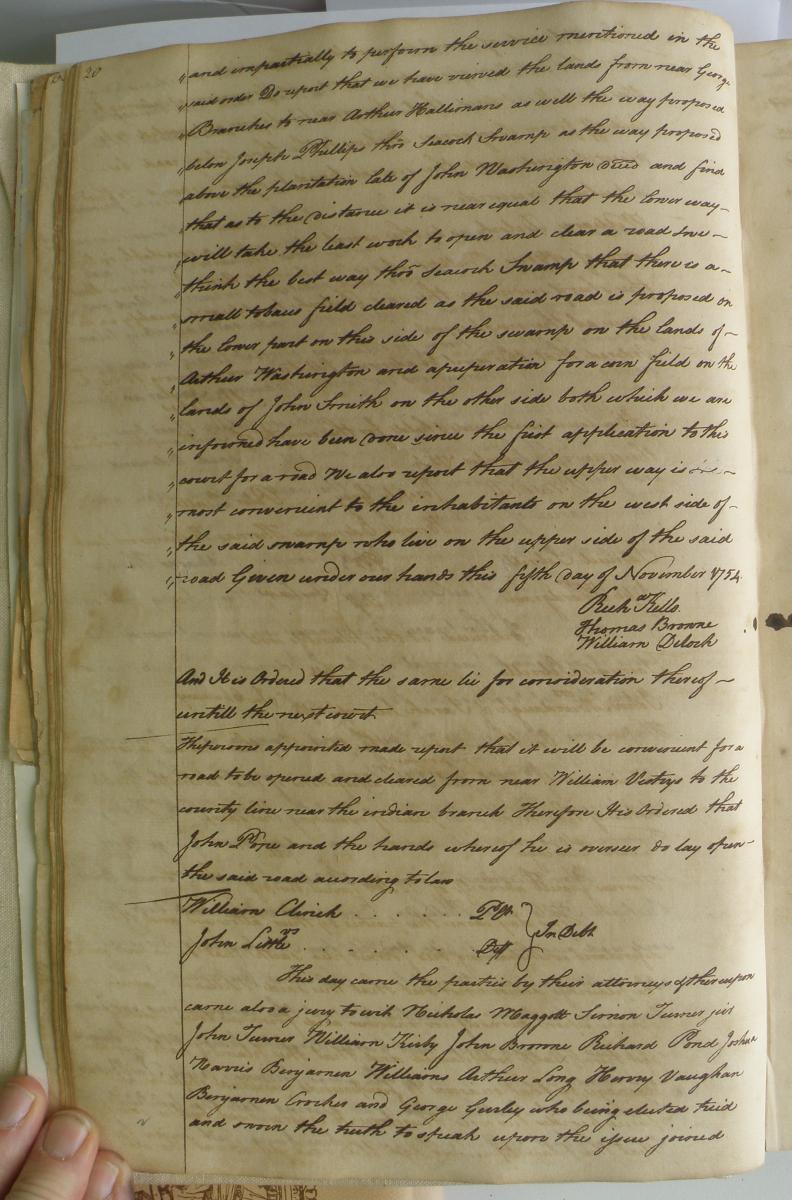 20
„ and impartially to perform the service mentioned in the
„ said order Do report that we have viewed the lands from near George
„ Branches to near Arthur Hallimans as well the way proposed
„ below Joseph Phillips thro Seacock Swamp as the way proposed
„ above the plantation late of John Washington decd and find
„ that as to the distance it is near equal that the lower way
„ will take the least work to open and clear a road
„ think the best way thro Seacock Swamp that there is a
„ small tobaco field cleared as the said road is proposed on
„ the lower part on this side of the swamp on the lands of
„ Arthur Washington and a preperation for a corn field on the
„ lands of John Smith on the other side both which we are
„ informed have been done since the first application to this
„ court for a road We also report that the upper way is
„ most convenient to the inhabitants on the west side of
„ the said swamp who live on the upper side of the said
„ road Given under our hands this fifth day of November 1754
Richd Kello
Thomas Browne
William Deloch
And It is Ordered that the same lie for consideration thereof
untill the next court
The persons appointed made report that it will be convenient for a
road to be opened and cleared from near William Vestrys to the
county line near the indian branch Therefore It is Ordered that
John Pope and the hands whereof he is overseer do lay open
the said road according to law
William Clinch . . . . . . Plt } In Debt
vs
John Little . . . . . . . Deft
This day came the parties by their attorneys & thereupon
came also a jury to wit Nicholas Maggett Simon Turner junr
John Turner William Kirby John Browne Richard Pond Joshua
Harris Benjamen Williams Arthur Long Henry Vaughan
Benjamen Crocker and George Gurley who being elected tried
and sworn the truth to speak upon the issue joined